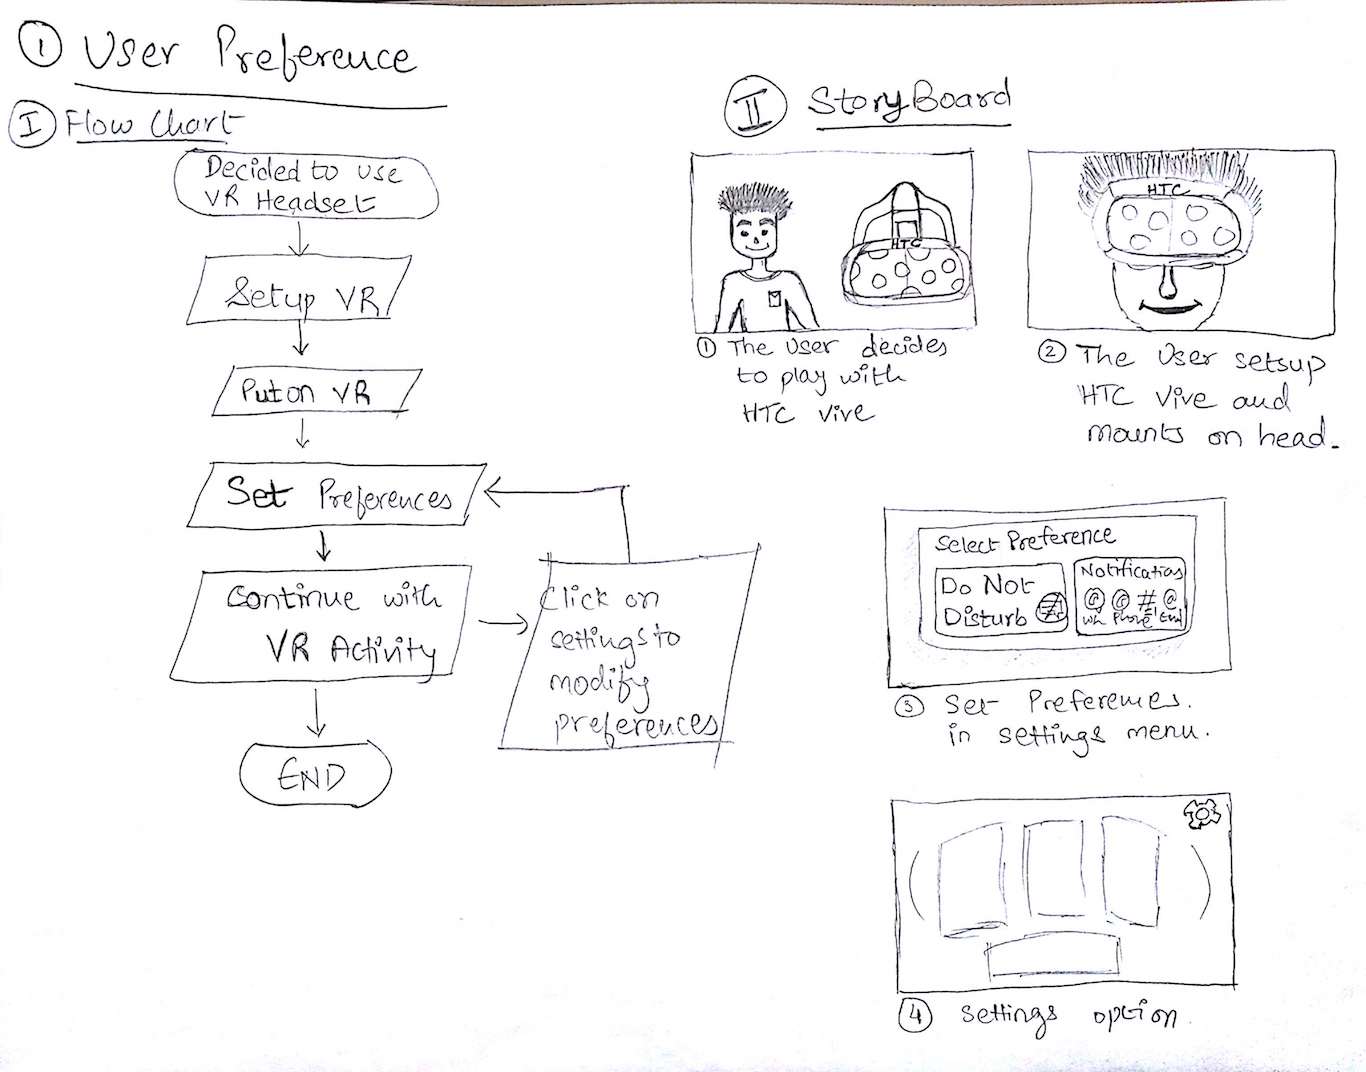 ① User Preference
Ⅰ Flow Chart
Decided to use
VR Headset
Setup VR
Put on VR
Set Preferences
Continue with
VR Activity
Click on
settings to
modify
preferences
END
Ⅱ StoryBoard
HTC
① The User decides
to play with
HTC Vive
HTC
② The User setsup
HTC Vive and
mounts on head.
Select Preference
Do Not
Disturb
Notifications
Phone
③ Set Preferences.
in settings menu.
④ Settings option.